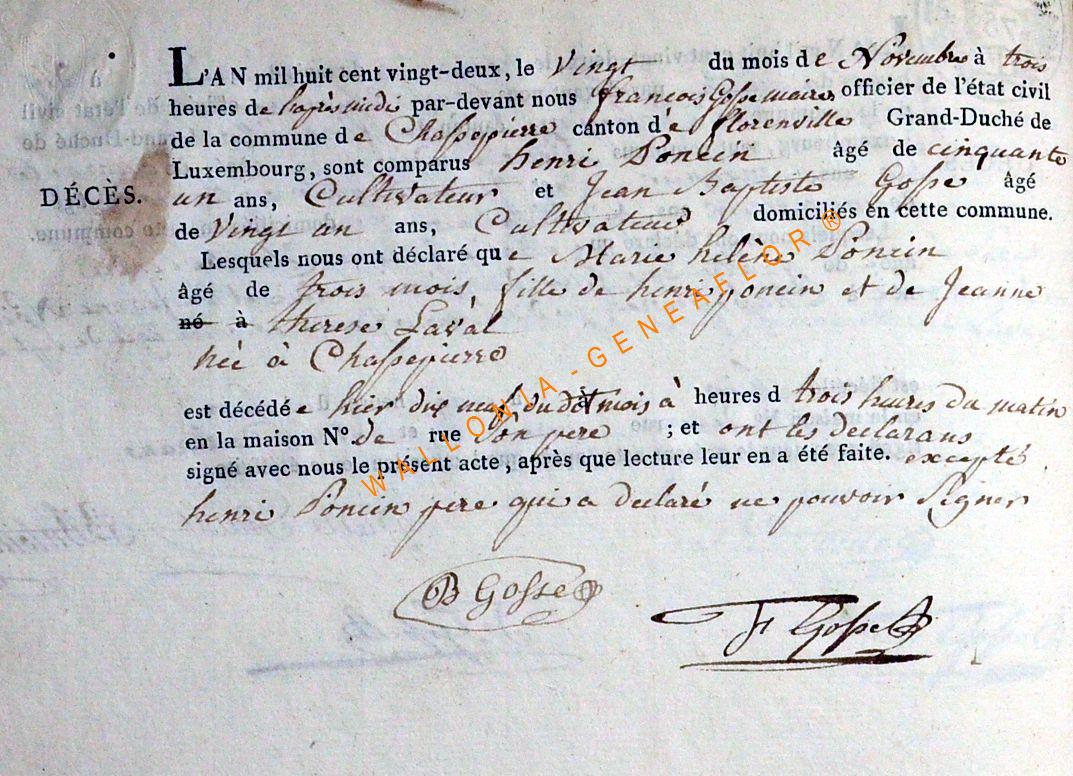 L'AN mil huit cent vingt-deux, le Vingt du mois de Novembre à trois
heures de laprès midi par-devant nous francois Gosse maire officier de l'état civil
de la commune de Chassepierre canton d'e florenville Grand-Duché de
Luxembourg, sont comparus henri Poncin âgé de cinquante
DÉCÈS. un ans, Cultivateur et Jean Baptiste Gosse âgé
de Vingt un ans, Cultivateur domiciliés en cette commune.
Lesquels nous ont déclaré que Marie helène Poncin
âgé de trois mois, fille de henri poncin et de Jeanne
né à therese Laval
née à Chassepierre
est décédée hier dix neuf du dt mois à heures d trois heures du matin
en la maison N.o de rue son pere ; et ont les declarans
signé avec nous le présent acte, après que lecture leur en a été faite. excepté
henri Poncin pere qui a declaré ne pouvoir signer
B Gosse
F Gosse
WALLONIA - GENEAFLOR ®